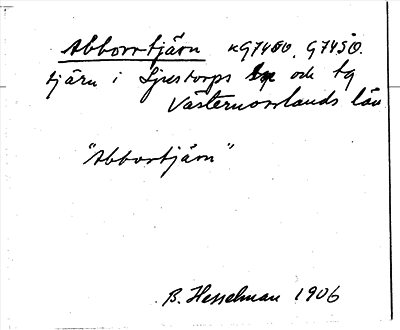 Abborrtjärn xG7480. G7450.
tjärn i Ljustorps sn och tg
Västernorrlands län
"Abbortjärn"
B. Hesselman 1906